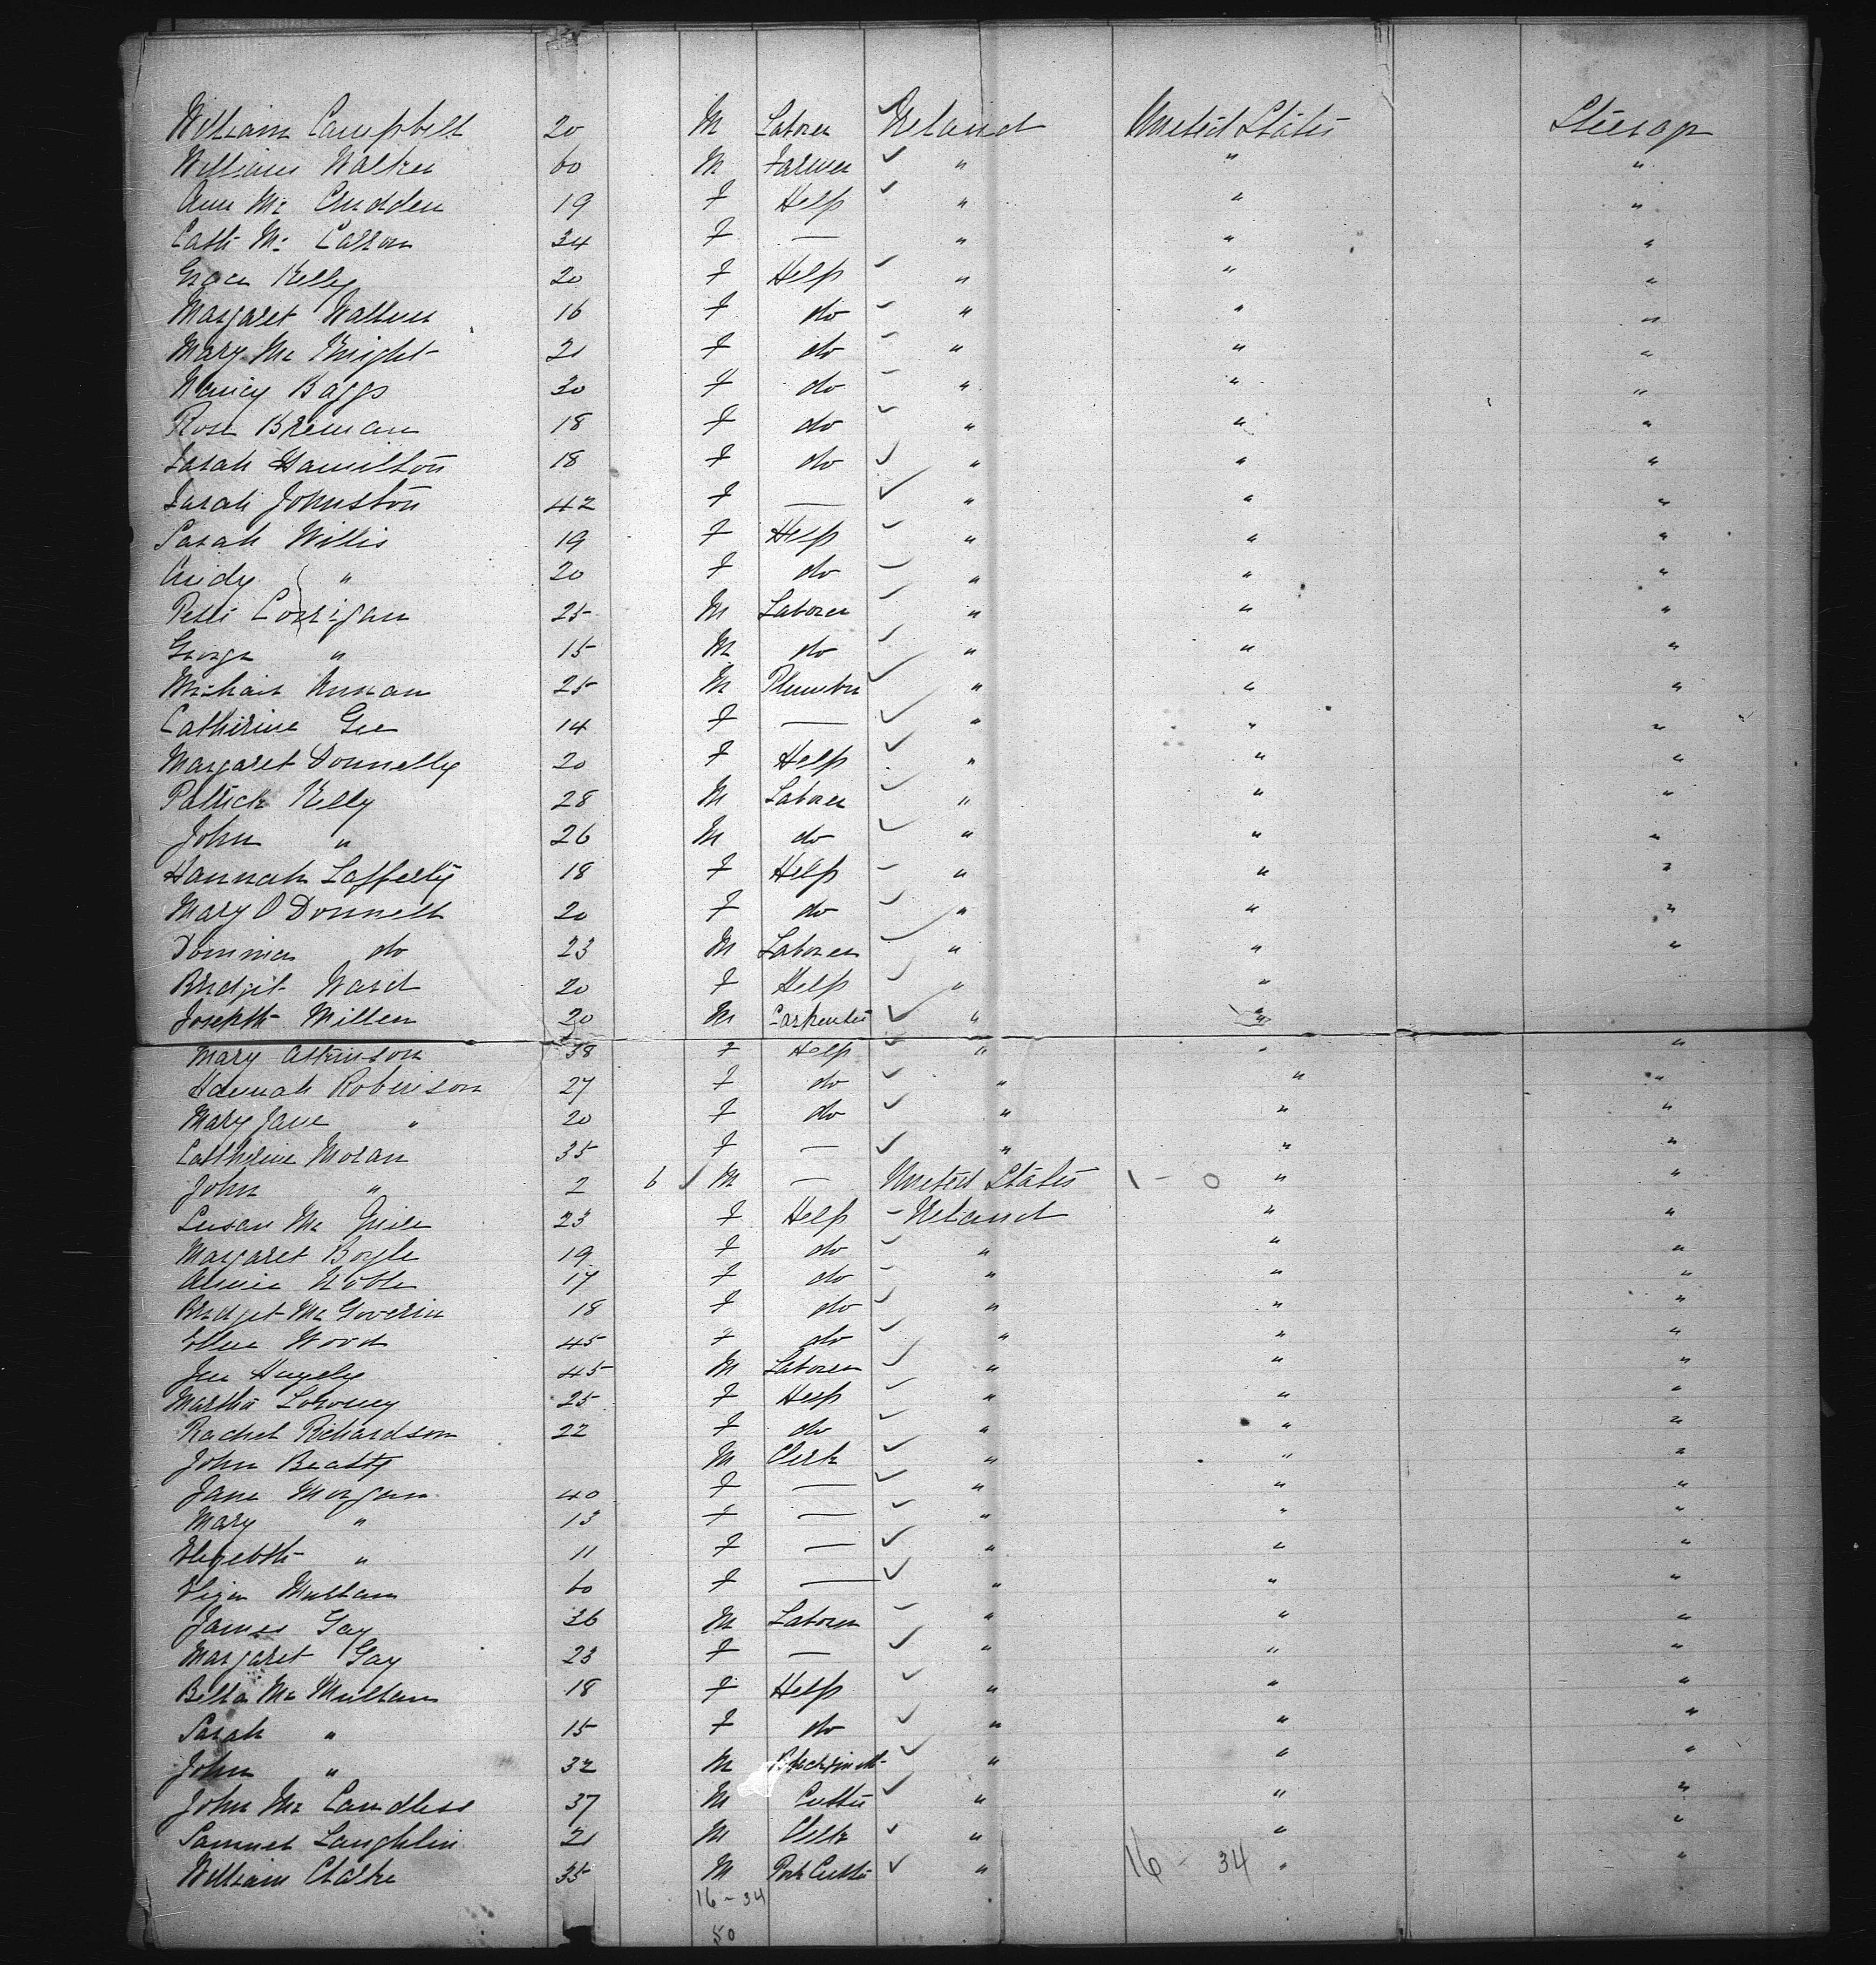 William Campbell 20 M Laborer Ireland United States Steerage
William Walker 60 M Farmer " " "
Ann Mc Cudden 19 F Help " " "
Cath Mc Carron 34 F — " " "
Grace Kelly 20 F Help " " "
Margaret Walters 16 F do " " "
Mary Mc Knight 21 F do " " "
Nancy Baggs 30 F do " " "
Rose Brennan 18 F do " " "
Sarah Hamilton 18 F do " " "
Sarah Johnston 42 F — " " "
Sarah Willis 19 F Help " " "
" 20 F do " " "
Peter Corrigan 25 M Laborer " " "
George " 15 M do " " "
Michael 25 M Plumber " " "
Catherine Gee 14 F — " " "
Margaret Donnelly 20 F Help " " "
Patrick Kelly 28 M Laborer " " "
John " 26 M do " " "
Hannah Lafferty 18 F Help " " "
Mary O Donnell 20 F do " " "
do 23 M Laborer " " "
Bridget Ward 20 F Help " "
Joseph Millen 20 M Carpenter " "
Mary Atkinson 38 F Help " " "
Hannah Robinson 27 F do " " "
Mary Jane " 20 F do " " "
Catherine Moran 35 F — " " "
John " 2 6 M — United States 1 - 0 " "
Susan Mc 23 F Help Ireland " "
Margaret Boyle 19 F do " " "
Annie Noble 17 F do " " "
Bridget Mc Goverin 18 F do " " "
Ellen Wood 45 F do " " "
45 M Laborer " " "
Martha 25 F Help " " "
Rachel Richardson 22 F do " " "
John Beatty M Clerk " " "
Jane Morgan 40 F — " " "
Mary " 13 F — " " "
Elizebth " 11 F — " " "
Eliza Mullan 60 F — " " "
James Gay 36 M Laborer " " "
Margaret Gay 23 F — " " "
Bella Mc Mullan 18 F Help " " "
Sarah " 15 F do " " "
John " 32 M " " "
John Mc Candless 37 M Cutter " " "
Samuel Laughlin 21 M Clerk " " "
William Clarke 35 M Pork Cutter " 16 - 34 " "
16 - 34
50